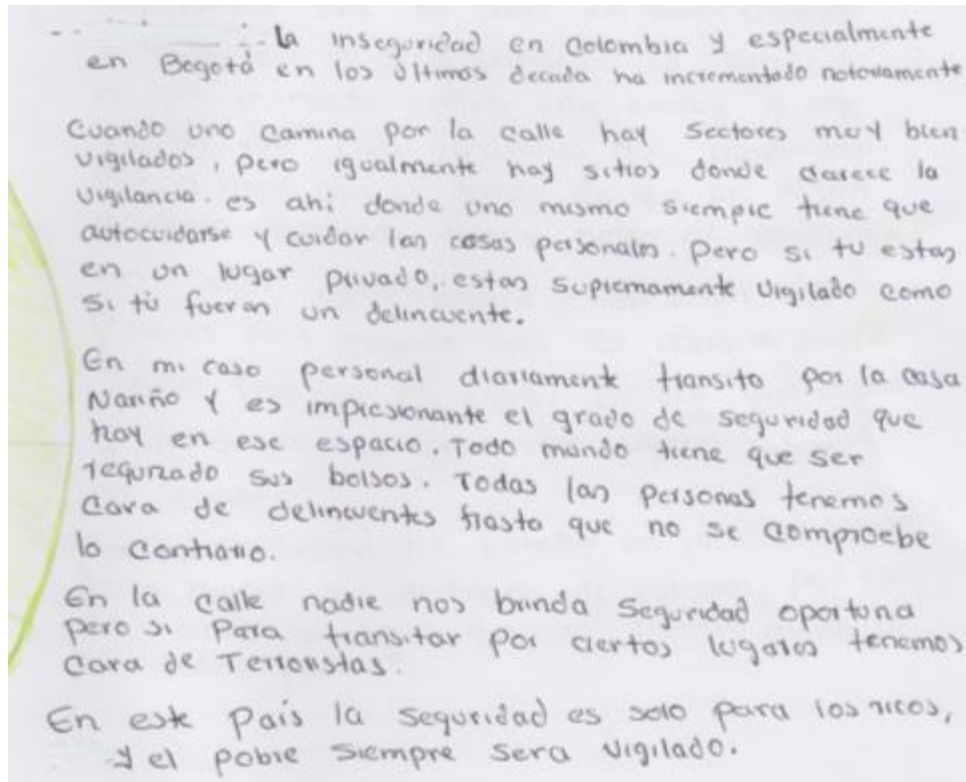 la inseguridad en Colombia y especialmente
en Bogotá en los últimos decada ha incrementado notoriamente
Cuando uno camina por la calle hay Sectores muy bien
vigilados, pero igualmente hay sitios donde carece la
vigilancia. es ahí donde uno mismo siempre tiene que
autocuidarse y cuidar las cosas personales. Pero si tu estas
en un lugar privado, estas supremamente vigilado como
si tú fueras un delincuente.
En mi caso personal diariamente transito por la casa
Nariño y es impresionante el grado de seguridad que
hay en ese espacio. Todo mundo tiene que ser
requizado sus bolsos. Todas las personas tenemos
Cara de delincuentes hasta que no se compruebe
lo contrario.
En la calle nadie nos brinda Seguridad oportuna
pero si para transitar por ciertos lugares tenemos
Cara de Terroristas.
En este País la seguridad es solo para los ricos,
y el pobre siempre sera vigilado.